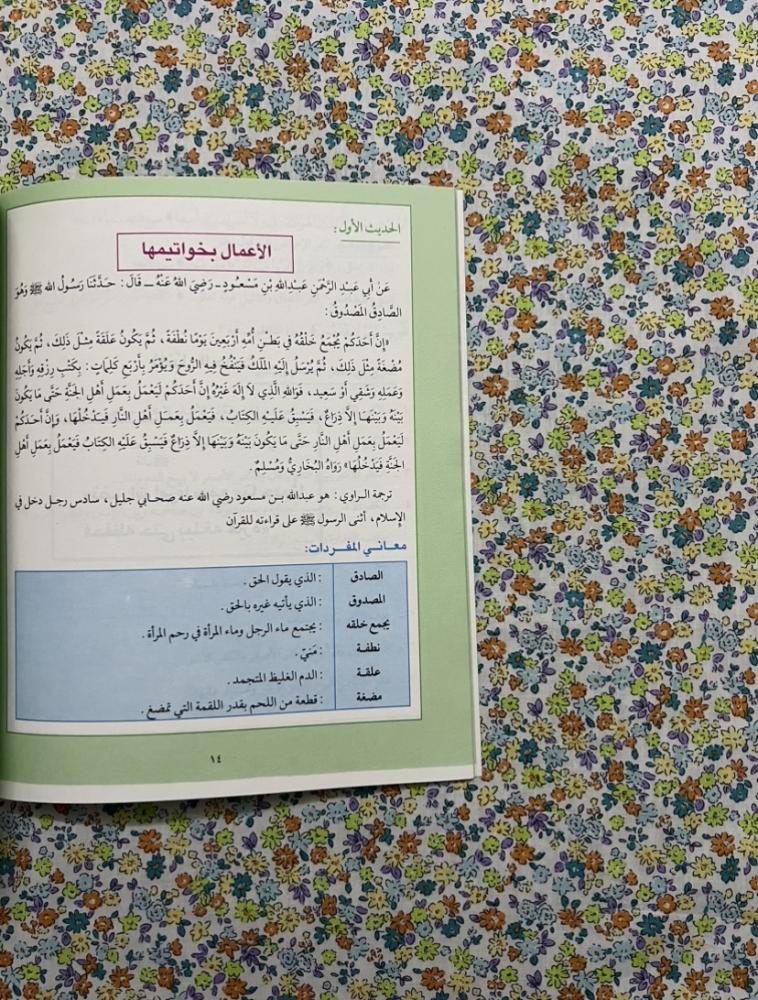 الحديث الأول:
الأعمال بخواتيمها
عَنْ أَبِي عَبْدِ الرَّحْمَنِ عَبْدِاللهِ بْنِ مَسْعُودٍ ـ رَضِيَ اللهُ عَنْهُ ـ قَالَ: حَدَّثَنَا رَسُولُ الله ﷺ وَهُوَ
الصَّادِقُ المَصْدُوقُ:
«إِنَّ أَحَدَكُمْ يُجْمَعُ خَلْقُهُ فِي بَطْنِ أُمِّهِ أَرْبَعِينَ يَوْمًا نُطْفَةً، ثُمَّ يَكُونُ عَلَقَةً مِثْلَ ذَلِكَ، ثُمَّ يَكُونُ
مُضْغَةً مِثْلَ ذَلِكَ، ثُمَّ يُرْسَلُ إِلَيْهِ المَلَكُ فَيَنْفُخُ فِيهِ الرُّوحَ وَيُؤْمَرُ بِأَرْبَعِ كَلِمَاتٍ: بِكَتْبِ رِزْقِهِ وَأَجَلِهِ
وَعَمَلِهِ وَشَقِي أَوْ سَعِيد، فَوَاللهِ الَّذِي لاَ إِلَهَ غَيْرُهُ إِنَّ أَحَدَكُمْ لَيَعْمَلُ بِعَمَلِ أَهْلِ الجَنَّةِ حَتَّى مَا يَكُونَ
بَيْنَهُ وَبَيْنَهَا إِلاَّ ذِرَاعٌ، فَيَسْبِقُ عَلَيْهِ الكِتَابُ، فَيَعْمَلُ بِعَمَلِ أَهْلِ النَّارِ فَيَدْخُلُهَا، وَإِنَّ أَحَدَكُمْ
لَيَعْمَلُ بِعَمَلِ أَهْلِ النَّارِ حَتَّى مَا يَكُونَ بَيْنَهُ وَبَيْنَهَا إِلاَّ ذِرَاعٌ فَيَسْبِقُ عَلَيْهِ الكِتَابُ فَيَعْمَلُ بِعَمَلِ أَهْلِ
الجَنَّةِ فَيَدْخُلُهَا» رَوَاهُ البُخَارِيُّ وَمُسْلِمٌ.
ترجمة الراوي: هو عبدالله بن مسعود رضي الله عنه صحابي جليل، سادس رجل دخل في
الإسلام، أثنى الرسول ﷺ على قراءته للقرآن
معاني المفردات:
الصادق : الذي يقول الحق.
المصدوق : الذي يأتيه غيره بالحق.
يجمع خلقه : يجتمع ماء الرجل وماء المرأة في رحم المرأة.
نطفة : مَنيّ.
علقة : الدم الغليظ المتجمد.
مضغة : قطعة من اللحم بقدر اللقمة التي تمضغ.
١٤